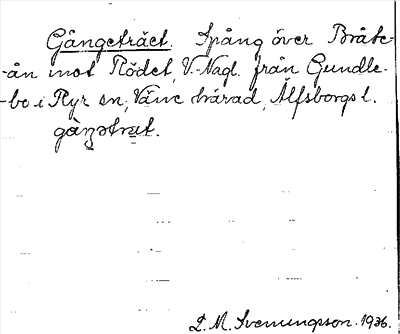 Gångeträet. Spång över Bråte-
-ån mot Rödet, V.-Nagl. från Gundle-
-bo i Ryr sn, Väne härad, Älfsborgs l.
gàŋətrɶt.
L. M. Svenungsson. 1936.